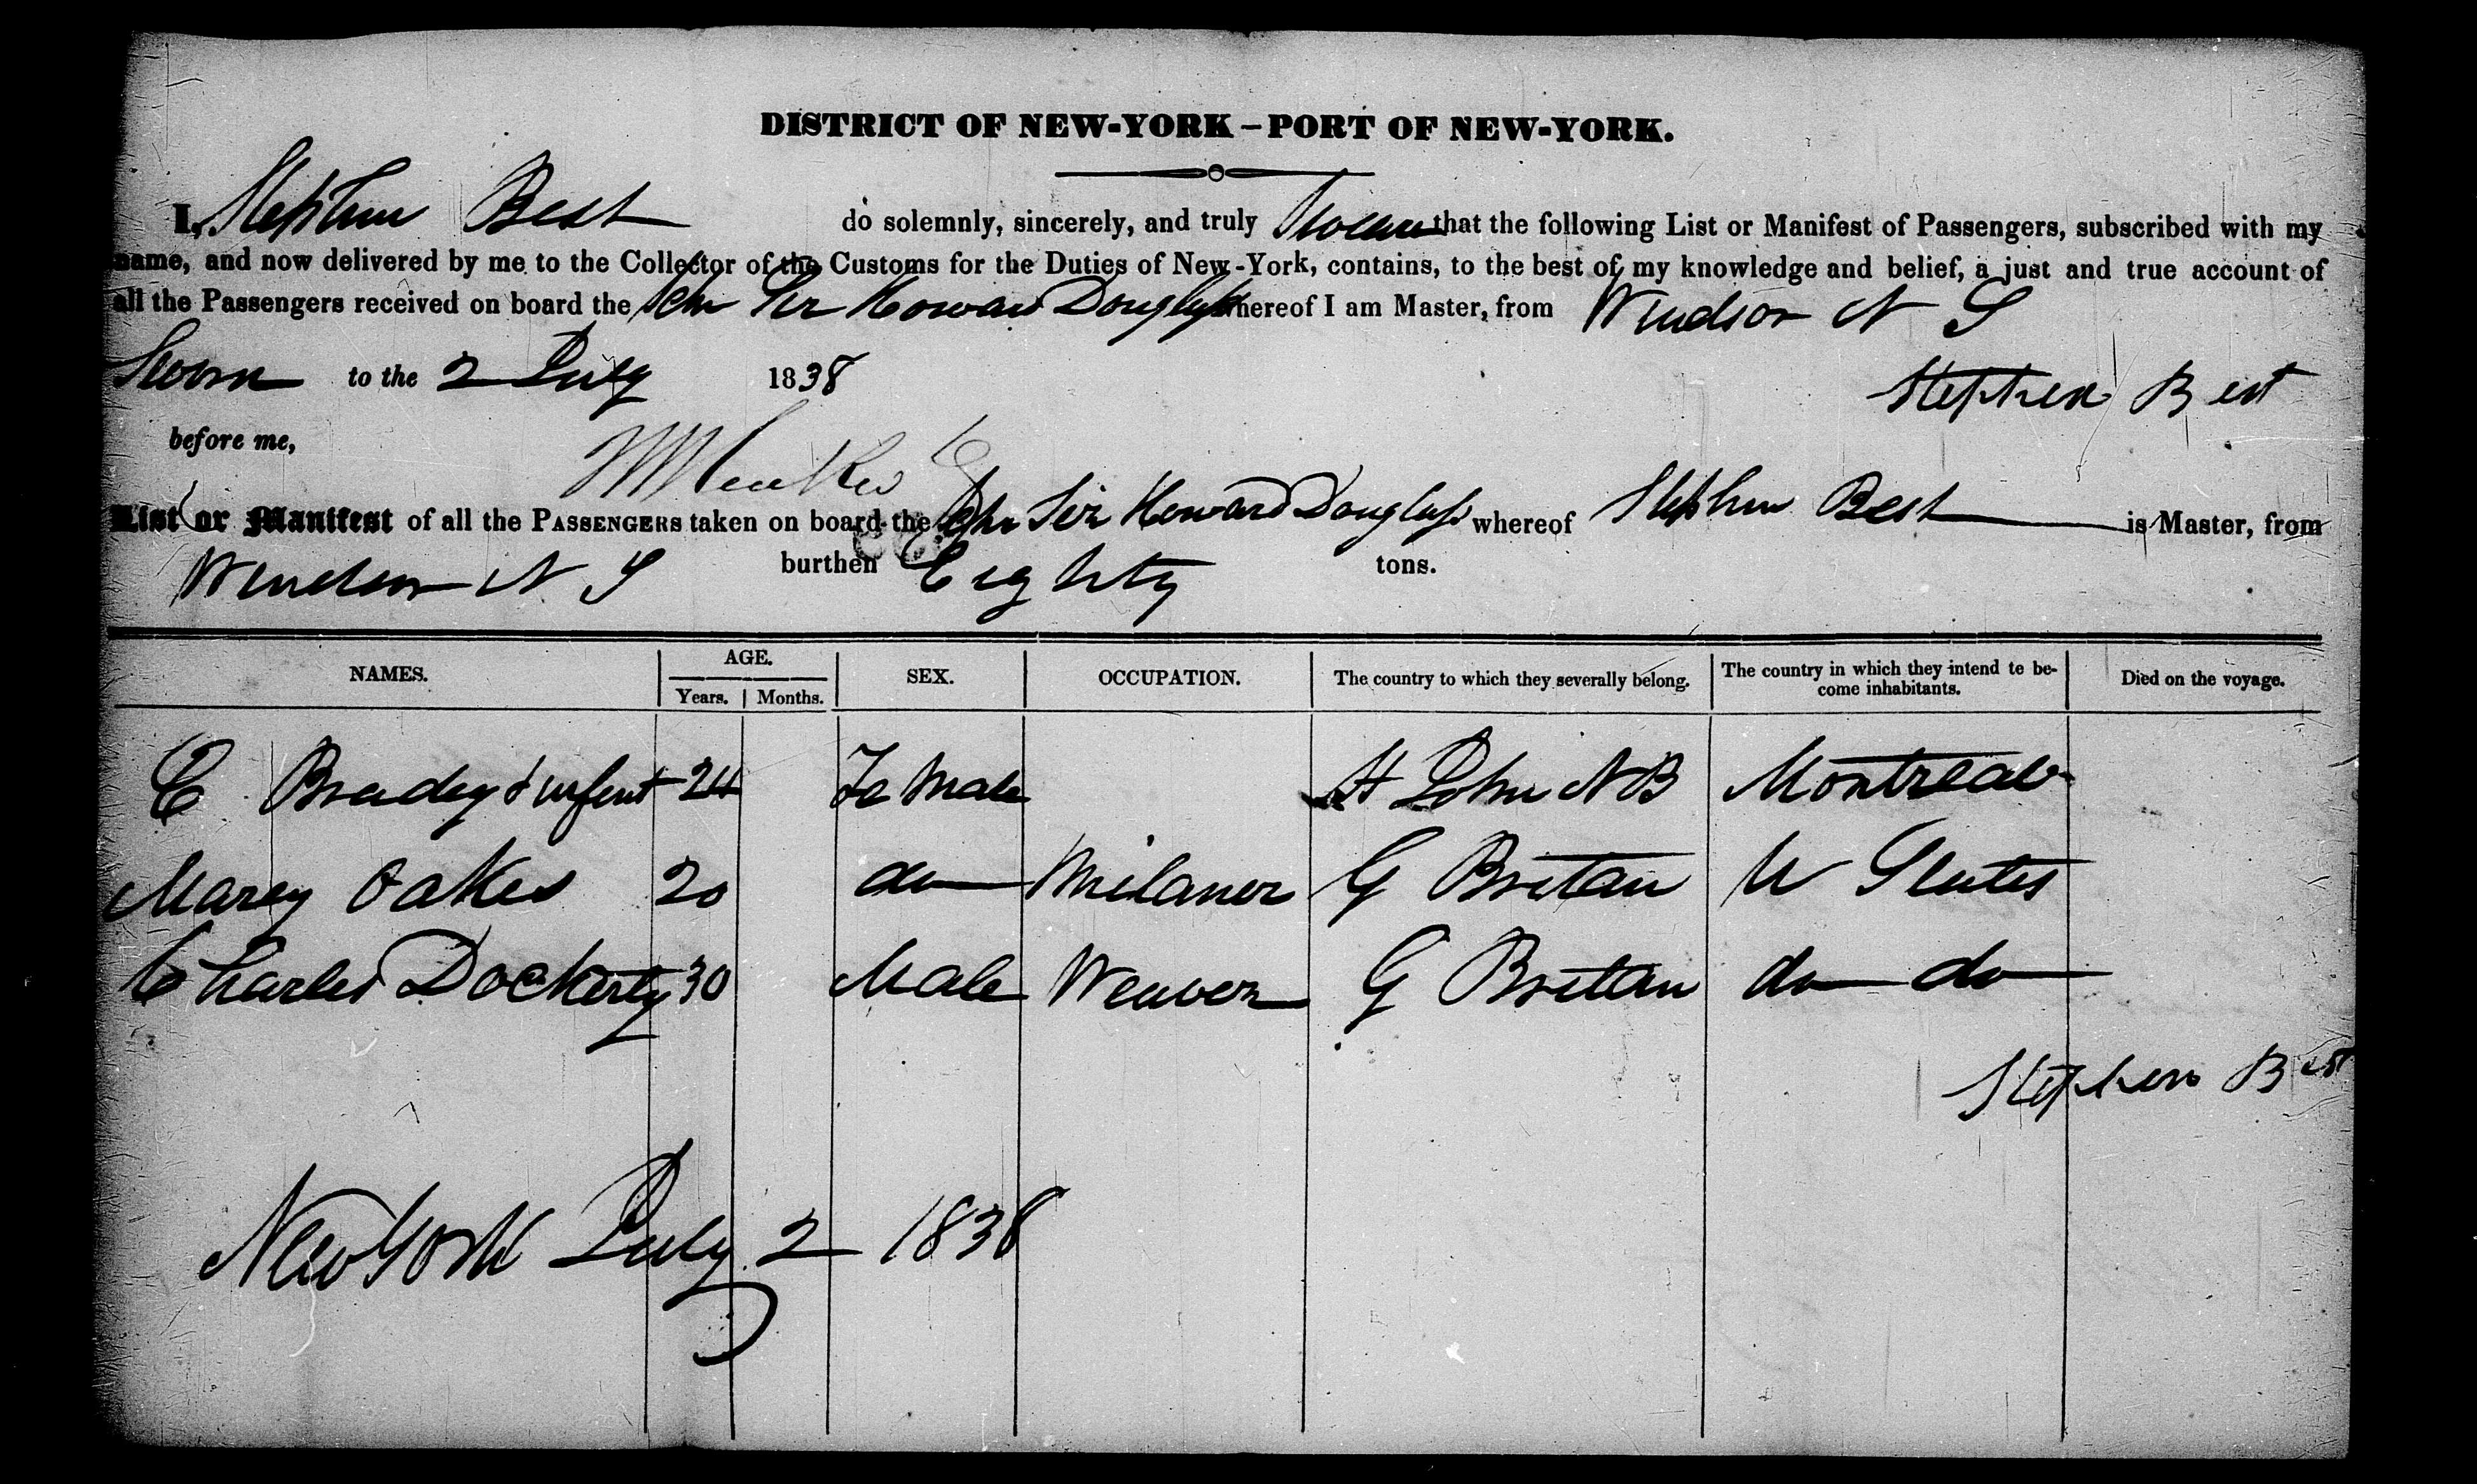 DISTRICT OF NEW-YORK – PORT OF NEW-YORK.
I, Stephen Best do solemnly, sincerely, and truly Swear that the following List or Manifest of Passengers, subscribed with my
name, and now delivered by me to the Collector of the Customs for the Duties of New-York, contains, to the best of my knowledge and belief, a just and true account of
all the Passengers received on board the Schr Sir Howard Douglass whereof I am Master, from Windsor N S
Sworn to the 2 July 1838
Stephen Best
before me,
List or Manifest of all the PASSENGERS taken on board the Schr Sir Howard Douglass whereof Stephen Best is Master, from
Windsor N S burthen Eighty tons.
NAMES. AGE. SEX. OCCUPATION. The country to which they severally belong. The country in which they intend te be-
come inhabitants. Died on the voyage.
Years. Months.
C Bradey & infent 24 Fe Male St John N B Montreal
Marey Oakes 20 do Milaner G Bretan U States
Charles Dockerty 30 Male Weaver G Bretan do do
Stephen Best
New York July 2 1838